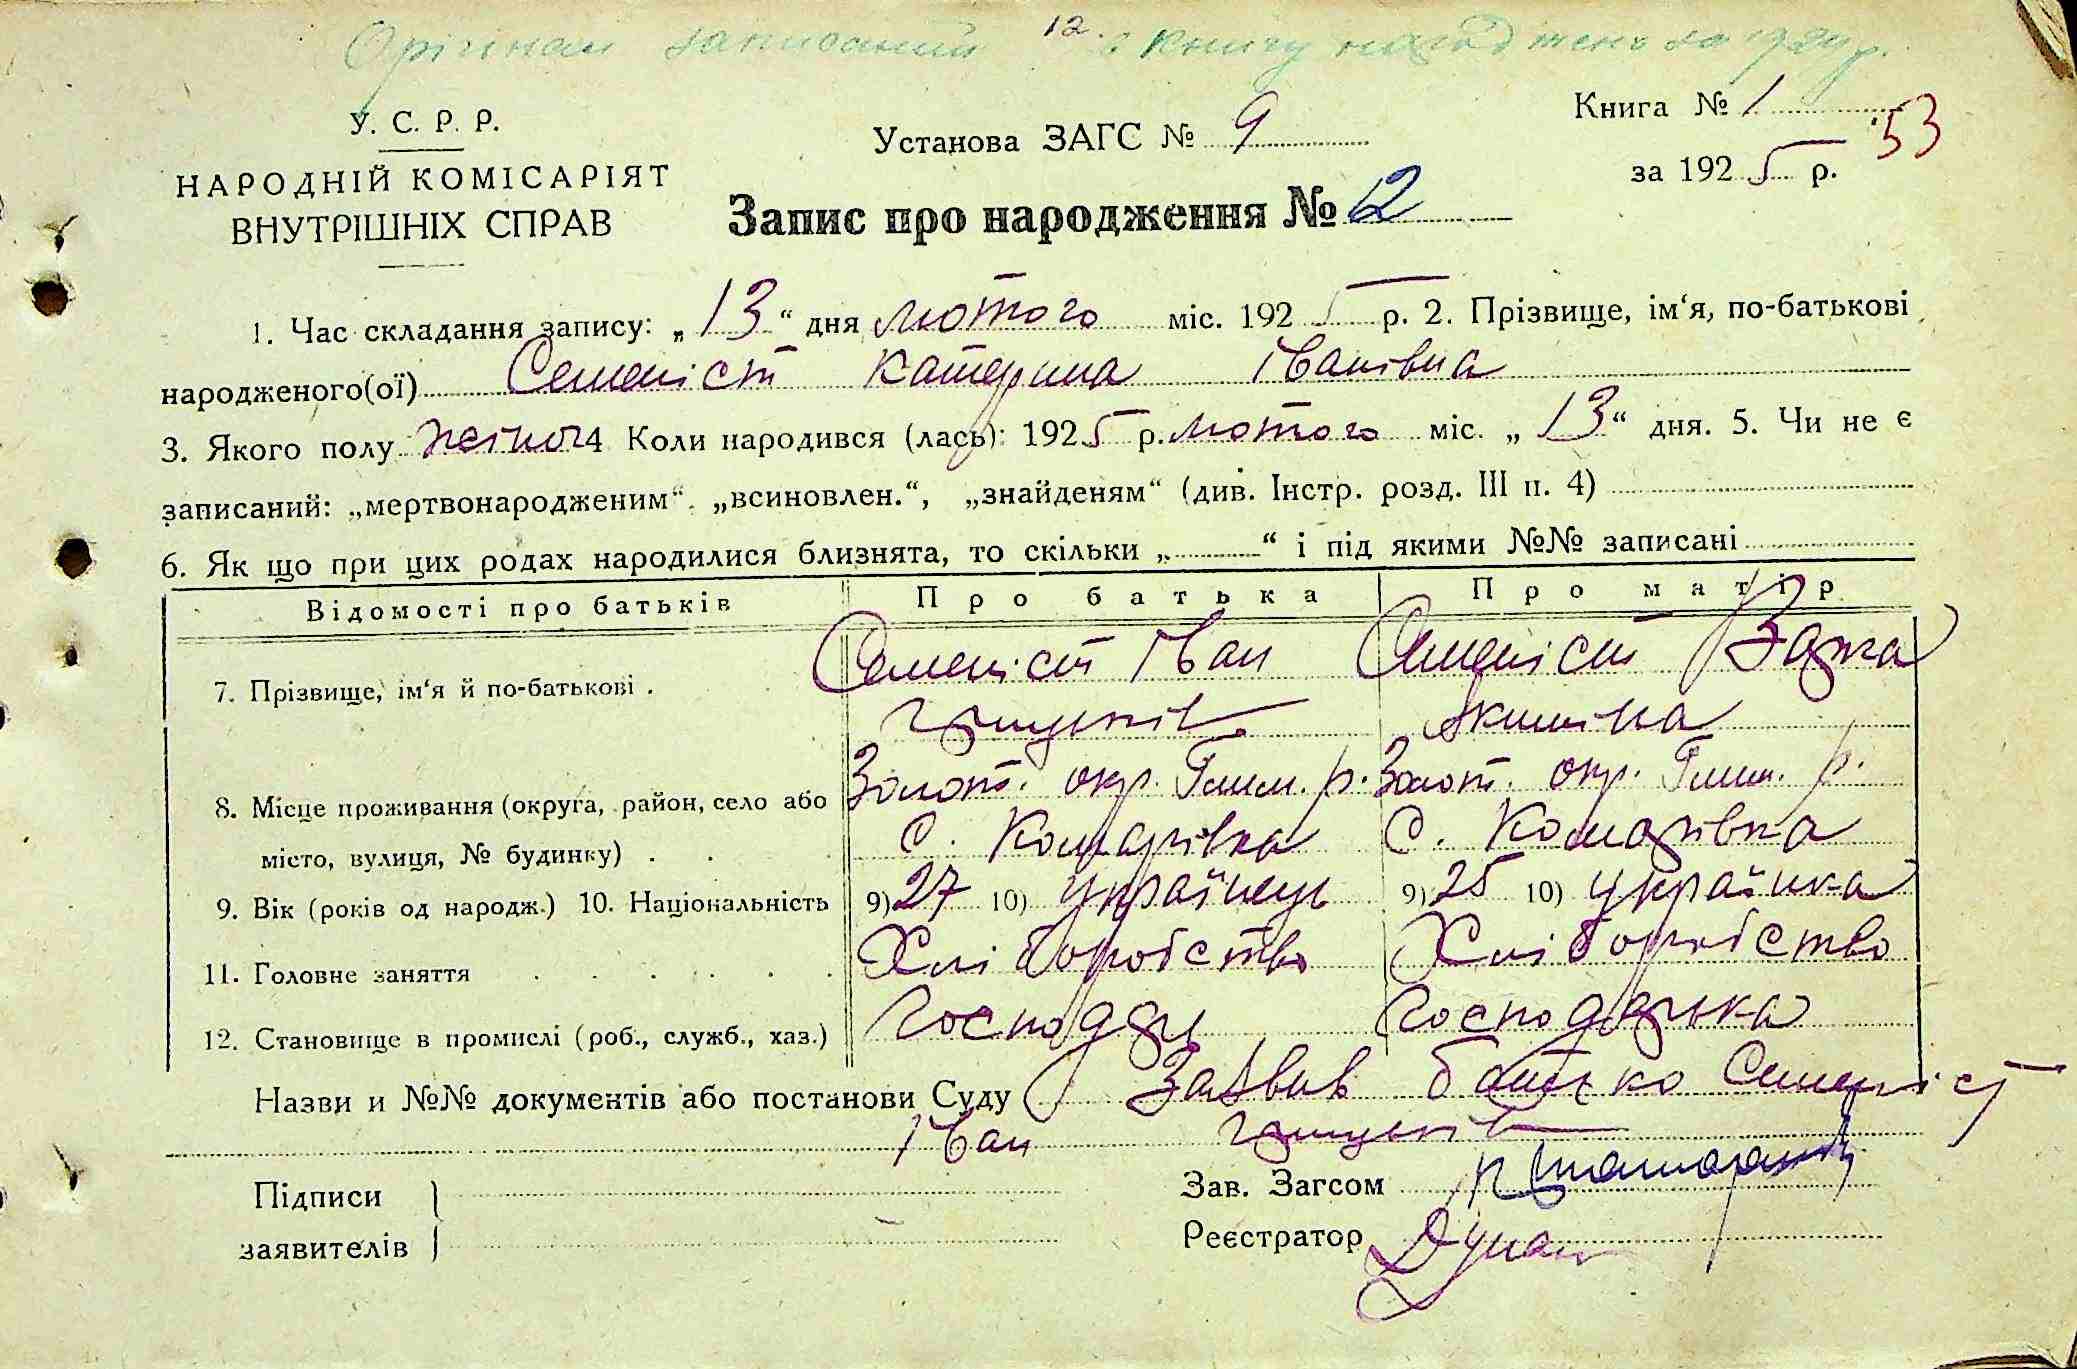 Оригінал записаний 12. в книгу народжень за 1924 р.
У. С. Р. Р.
НАРОДНІЙ КОМІСАРІЯТ
ВНУТРІШНІХ СПРАВ
Установа ЗАГС № 9
Книга № 1
53
за 1925 р.
Запис про народження № 12
1. Час складання запису: „13“ дня лютого міс. 1925 р. 2. Прізвище, ім‘я, по-батькові
народженого(ої) Семеніст Катерина Іванівна
3. Якого полу жіноч 4 Коли народився (лась): 1925 р. лютого міс. „13“ дня. 5. Чи не є
записаний: „мертвонародженим“. „всиновлен.“, „знайденям“ (див. Інстр. розд. III п. 4)
6. Як що при цих родах народилися близнята, то скільки „ “ і під якими №№ записані
Відомості про батьків Про батька Про матір
7. Прізвище, ім‘я й по-батькові . Семеніст Іван Семеніст
Грицьків Якимівна
8. Місце проживання (округа, район, село або Золот. окр. Гельм. р. Золот. окр. Гельм. р.
місто, вулиця, № будинку) . . С. Комарівка С. Комарівка
9. Вік (років од народж.) 10. Національність 9) 27 10) українець 9) 25 10) українка
11. Головне заняття . . . . . . Хліборобство Хліборобство
12. Становище в промислі (роб., служб., хаз.) Господар Господарька
Назви и №№ документів або постанови Суду Заявив батько Семеніст
Іван Грицьків
Підписи
заявителів
Зав. Загсом
Реєстратор